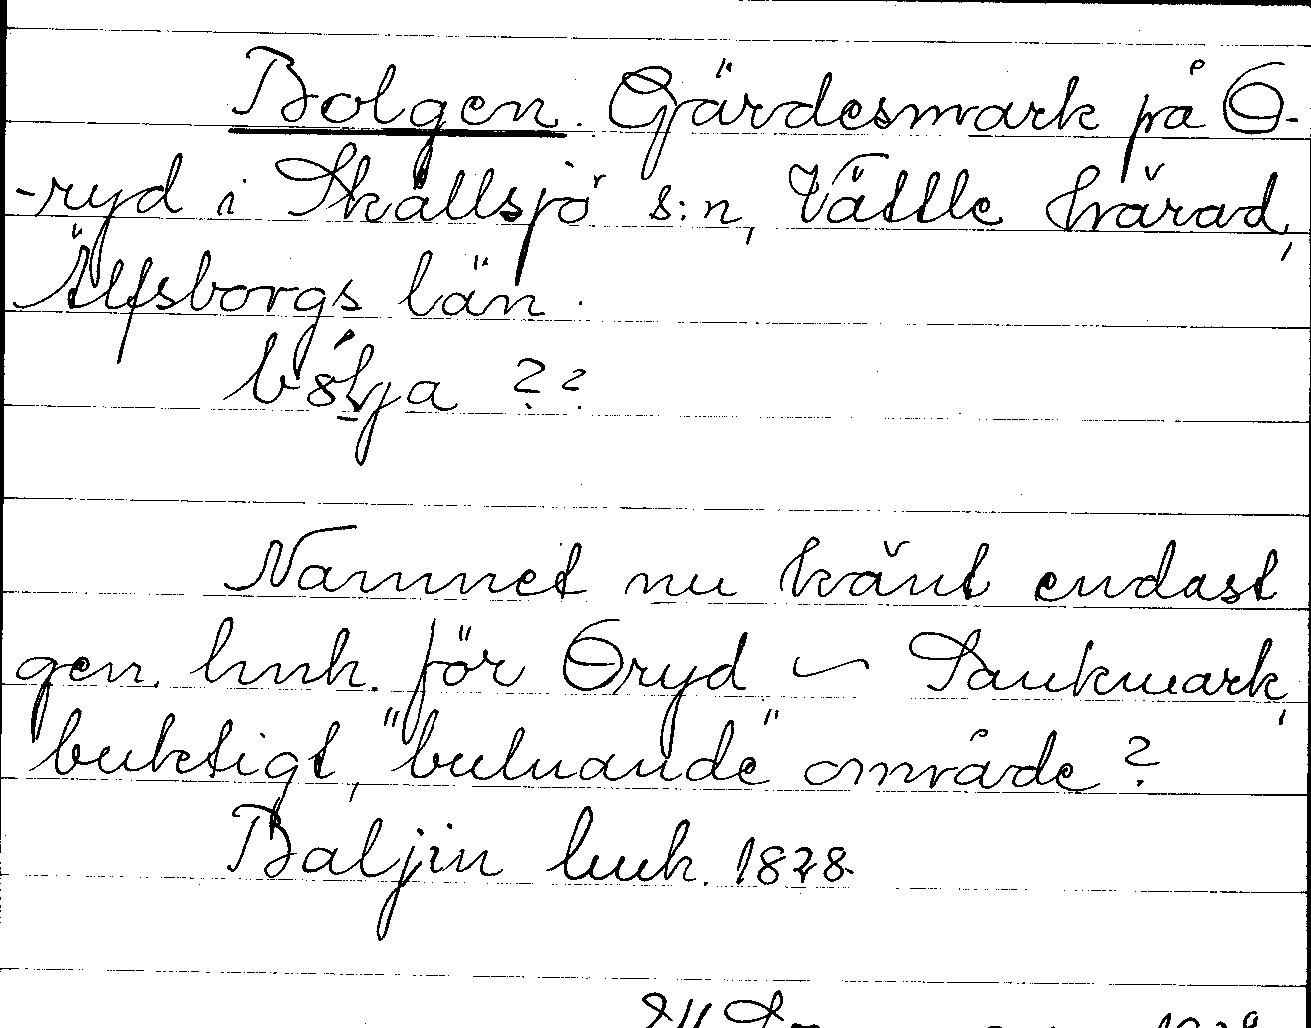 Bolgen. Gärdesmark på Ö-
-ryd i Skallsjö s:n, Vättle härad,
Älfsborgs län.
bólja ??
Namnet nu känt endast
gen. lmh. för Öryd – Sankmark,
buktigt, "bulnande" område?
Baljin lmh. 1828.